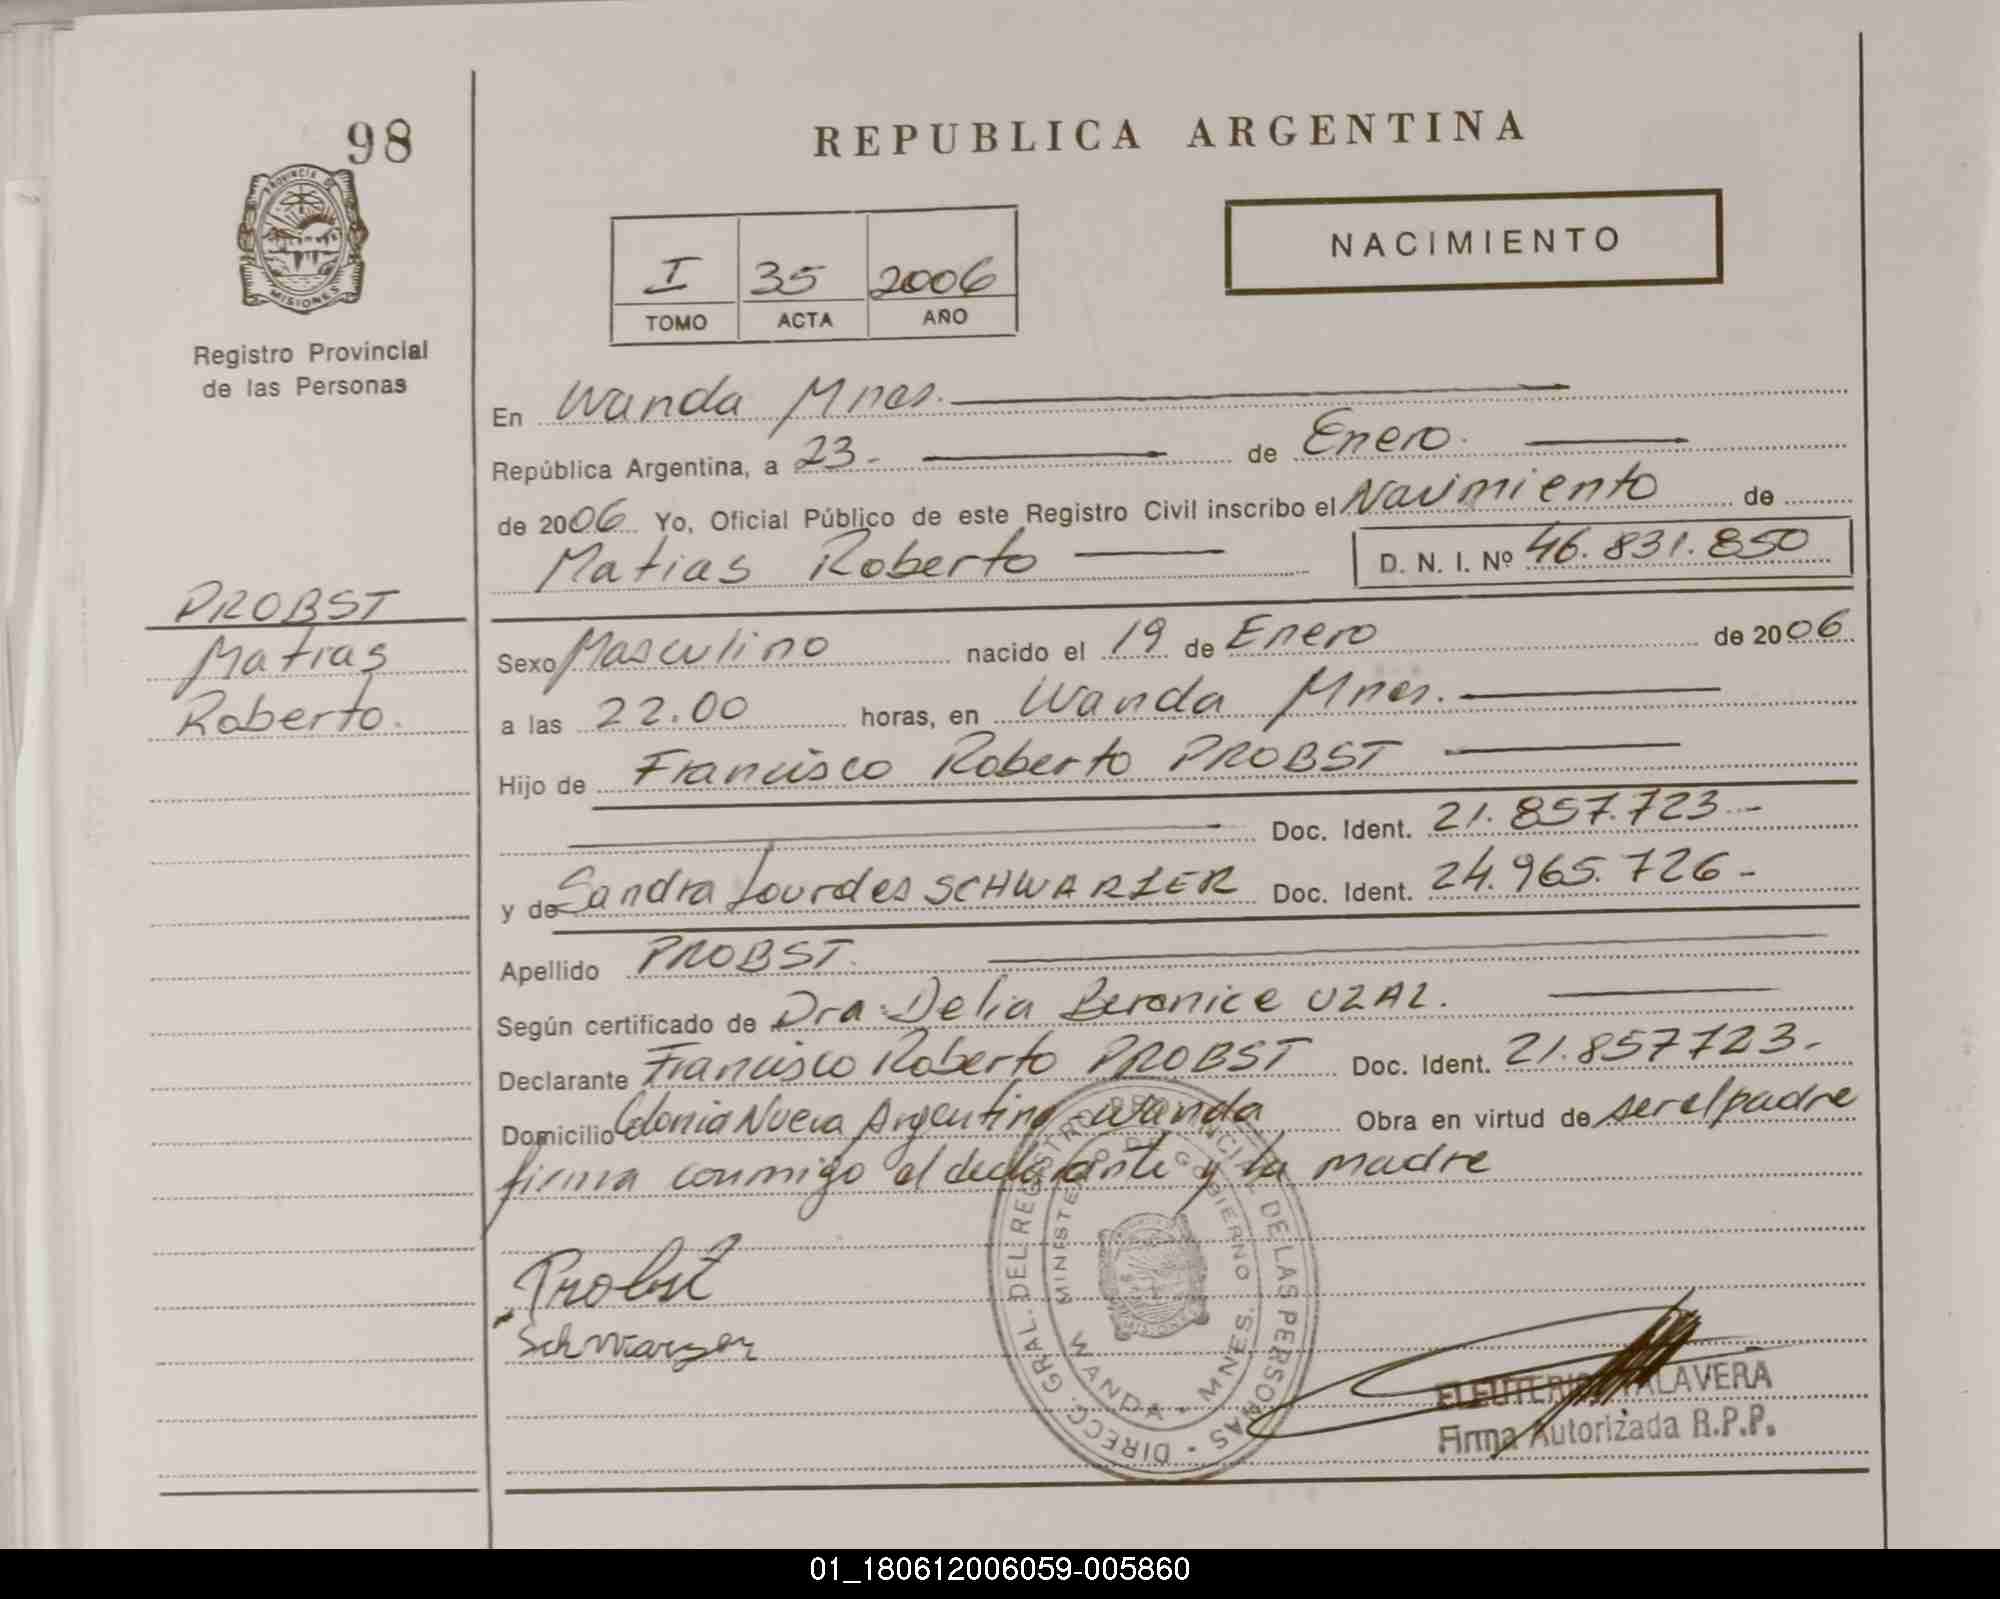 98
PROVINCIA DE
MISIONES
Registro Provincial
de las Personas
PROBST
Matias
Roberto.
REPUBLICA ARGENTINA
I 35 2006
TOMO ACTA AÑO
NACIMIENTO
En Wanda Mnes.
República Argentina, a 23.- de Enero.
de 2006 Yo, Oficial Público de este Registro Civil inscribo el Nacimiento de
Matias Roberto D. N. I. Nº 46.831.850
Sexo Masculino nacido el 19 de Enero de 2006
a las 22.00 horas, en Wanda Mnes.
Hijo de Francisco Roberto PROBST
Doc. Ident. 21.857.723.-
y de Sandra Lourdes SCHWARZER Doc. Ident. 24.965.726-
Apellido PROBST.
Según certificado de Dra. Delia Berenice UZAL.
Declarante Francisco Roberto PROBST Doc. Ident. 21.857723.-
Domicilio Colonia Nueva Argentina Wanda Obra en virtud de ser el padre
firma conmigo el declarante y la madre
Probst
Schwarzer
DIRECC. GRAL. DEL REGISTRO PROVINCIAL DE LAS PERSONAS
MINISTERIO DE GOBIERNO
WANDA - MNES.
ELEUTERIO TALAVERA
Firma Autorizada R.P.P.
01_180612006059-005860